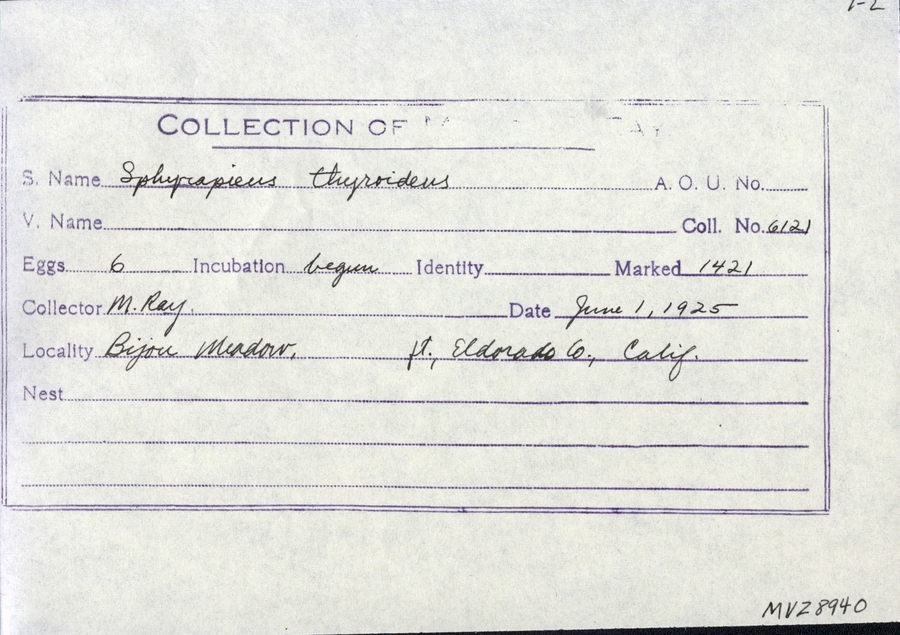 1-2
COLLECTION OF
S. Name Sphyrapicus thyroideus A. O. U. No.
V. Name Coll. No. 6121
Eggs 6 Incubation begun Identity Marked 1421
Collector M. Ray. Date June 1, 1925
Locality Bijou Meadow, ft., Eldorado Co., Calif.
Nest
MVZ 8940